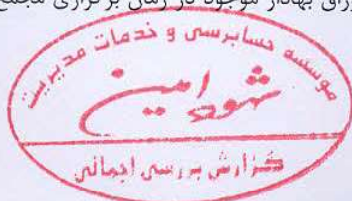 وراق بهادار موجود در زمان برگزاری مجمع
موسسه حسابرسی و خدمات مدیریت
شهود امین
گزارش بررسی اجمالی